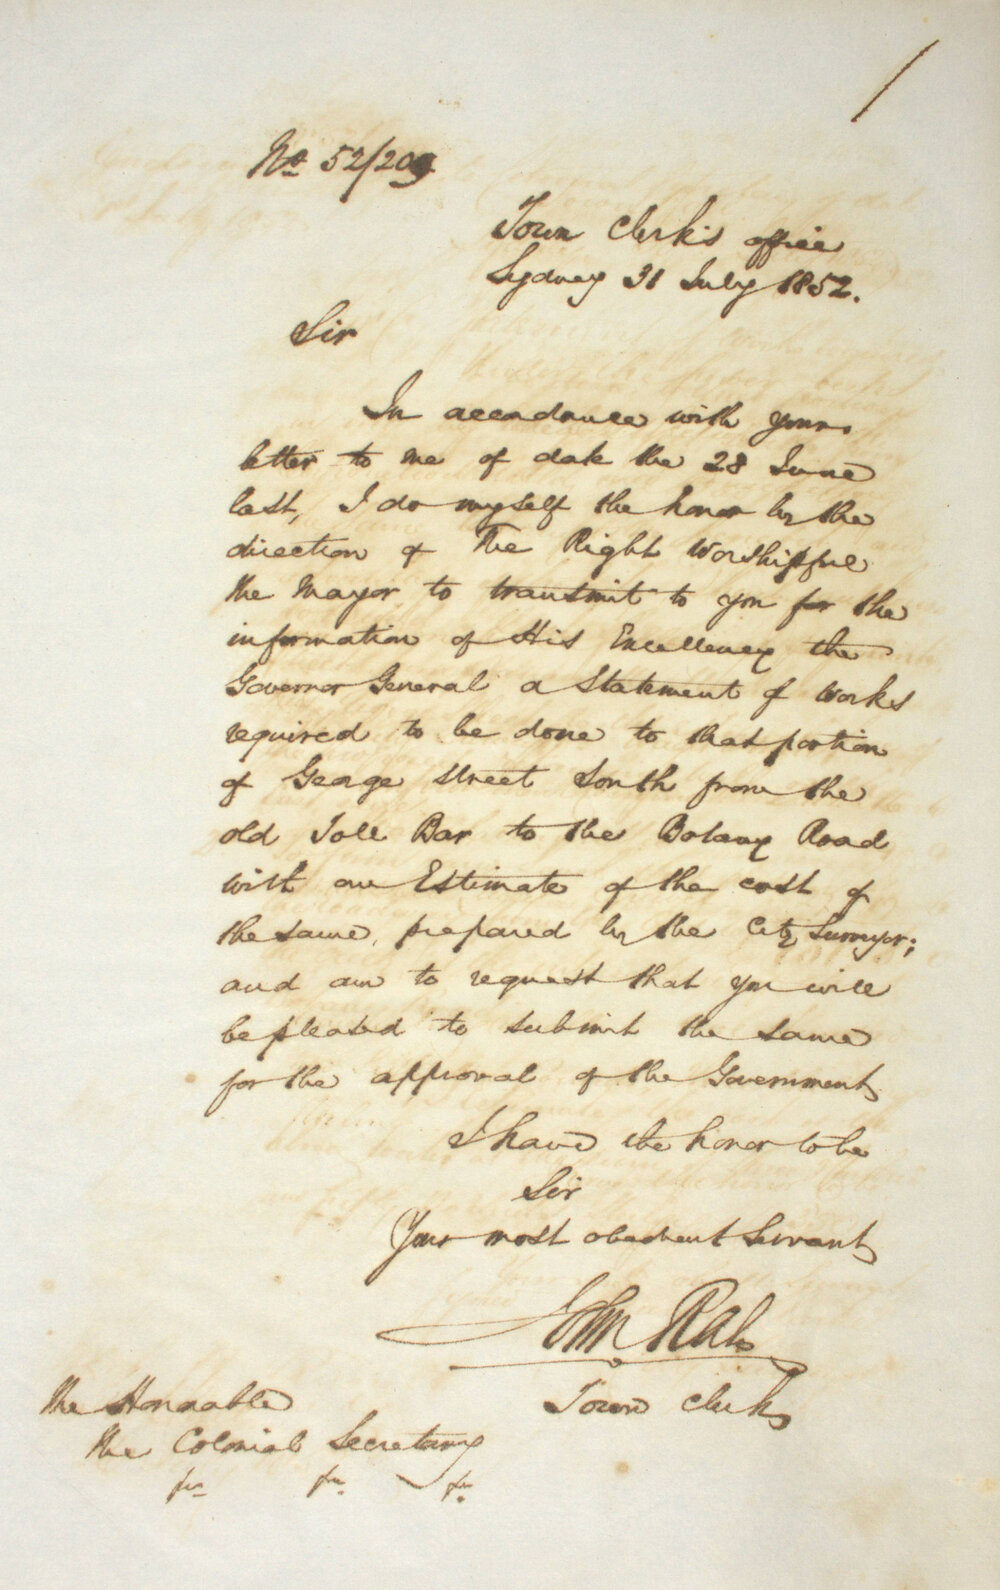 No 52/209
Town Clerk's office
Sydney 31 July 1852.
Sir
In accordance with your
letter to me of date the 28 June
last, I do myself the honor by the
direction of The Right Worshipful
the Mayor to transmit to you for the
information of His Excellency the
Governor General a Statement of Works
required to be done to that portion
of George Street South from the
old Toll Bar to the Botany Road
with an Estimate of the cost of
the same, prepared by the City Surveyor;
and am to request that you will
be pleased to submit the same
for the approval of the Government
I have the honor to be
Sir
Your most obedient Servant
John Rae
Town Clerk
The Honorable
the Colonial Secretary